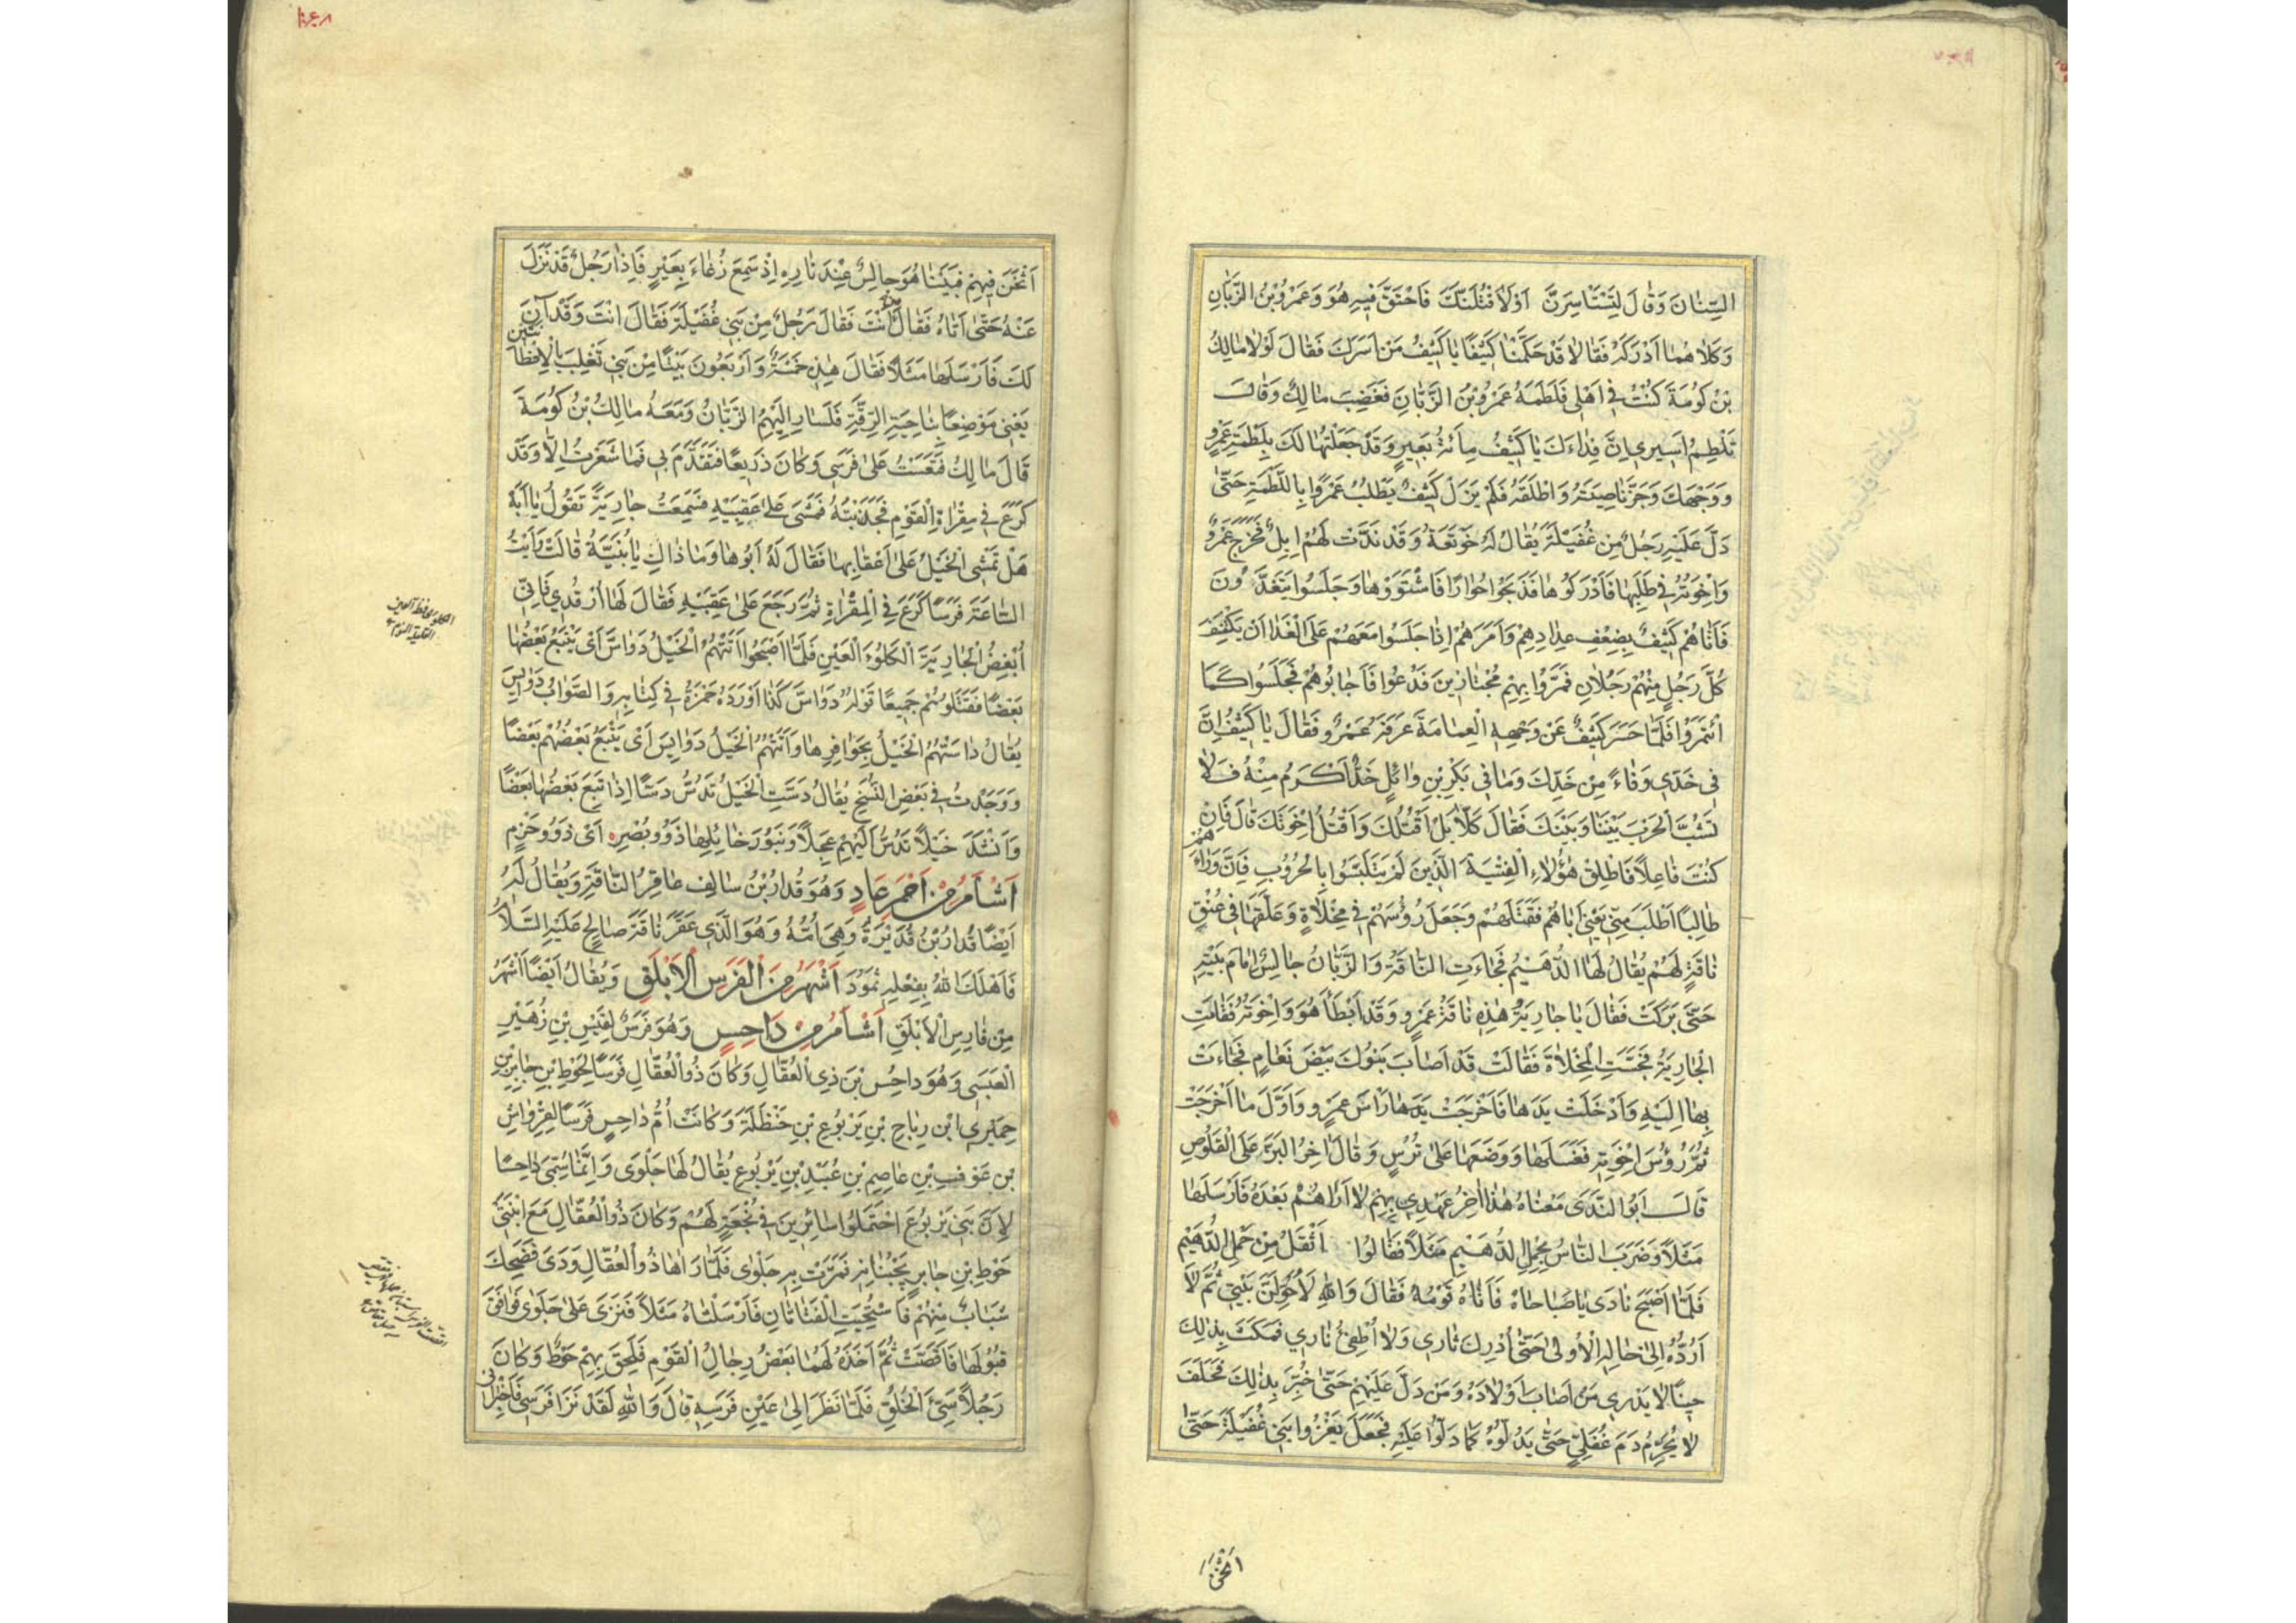 السِّنَانَ وَقَالَ لَتَسْتَأْسِرَنَّ أَوْ لَأَقْتُلَنَّكَ فَاحْتَقَّ فِيهِ هُوَ وَعَمْرُو بْنُ الزَّبَّانِ
وَكِلَاهُمَا أَدْرَكَهُ فَقَالَا قَدْ حَكَّمْنَا كَثِيفًا يَا كَثِيفُ مَنْ أَسَرَكَ فَقَالَ لَوْلَا مَالِكُ
بْنُ كُومَةَ كُنْتُ فِي أَهْلِي فَلَطَمَهُ عَمْرُو بْنُ الزَّبَّانِ فَغَضِبَ مَالِكٌ وَقَالَ
تَلْطِمُ أَسِيرِي إِنَّ فِدَاءَكَ يَا كَثِيفُ مِائَةُ بَعِيرٍ وَقَدْ جَعَلْتُهَا لَكَ بِلَطْمَةِ عَمْرٍو
وَوَجْهَكَ وَجَزَّ نَاصِيَتَهُ وَأَطْلَقَهُ فَلَمْ يَزَلْ كَثِيفٌ يَطْلُبُ عَمْرًوا بِاللَّطْمَةِ حَتَّى
دَلَّ عَلَيْهِ رَجُلٌ مِنْ غُفَيْلَةَ يُقَالُ لَهُ خَوْتَعَةُ وَقَدْ نَدَّتْ لَهُمْ إِبِلٌ فَخَرَجَ عَمْرٌو
وَإِخْوَتُهُ فِي طَلَبِهَا فَأَدْرَكُوهَا فَذَبَحُوا حُوَارًا فَاشْتَوَوْهَا وَجَلَسُوا يَتَغَدَّوْنَ
فَأَتَاهُمْ كَثِيفٌ بِضِعْفِ عِدَادِهِمْ وَأَمَرَهُمْ إِذَا جَلَسُوا مَعَهُمْ عَلَى الْغَدَا أَنْ يَكْتَنِفَ
كُلَّ رَجُلٍ مِنْهُمْ رَجُلَانِ فَمَرُّوا بِهِمْ مُجْتَازِينَ فَدَعُوا فَأَجَابُوهُمْ فَجَلَسُوا كَمَا
ائْتَمَرُوا فَلَمَّا حَسَرَ كَثِيفٌ عَنْ وَجْهِهِ الْعِمَامَةَ عَرَفَهُ عَمْرٌو فَقَالَ يَا كَثِيفُ إِنَّ
فِي خَدِّي وَفَاءً مِنْ خَدِّكَ وَمَا فِي بَكْرِ بْنِ وَائِلٍ خَدٌّ أَكْرَمُ مِنْهُ فَلَا
تَشُبَّ الْحَرْبَ بَيْنَنَا وَبَيْنَكَ فَقَالَ كَلَّا بَلْ أَقْتُلُكَ وَأَقْتُلُ إِخْوَتَكَ قَالَ فَإِنْ
كُنْتَ فَاعِلًا فَأَطْلِقْ هَؤُلَاءِ الْفِتْيَةَ الَّذِينَ لَمْ يَتَلَبَّسُوا بِالْحُرُوبِ فَإِنَّ وَرَاءَهُمْ
طَالِبًا أَطْلَبَ مِنِّي يَعْنِي أَبَاهُمْ فَقَتَلَهُمْ وَجَعَلَ رُؤُسَهُمْ فِي مِخْلَاةٍ وَعَلَّقَهَا فِي عُنُقِ
نَاقَةٍ لَهُمْ يُقَالُ لَهَا الدُّهَيْمُ فَجَاءَتِ النَّاقَةُ وَالزَّبَّانُ جَالِسٌ أَمَامَ بَيْتِهِ
حَتَّى بَرَكَتْ فَقَالَ يَا جَارِيَةُ هَذِهِ نَاقَةُ عَمْرٍو وَقَدْ أَبْطَأَ هُوَ وَإِخْوَتُهُ فَقَامَتِ
الْجَارِيَةُ فَجَسَّتِ الْمِخْلَاةَ فَقَالَتْ قَدْ أَصَابَ بَنُوكَ بَيْضَ نَعَامٍ فَجَاءَتْ
بِهَا إِلَيْهِ وَأَدْخَلَتْ يَدَهَا فَأَخْرَجَتْ يَدَهَا رَأْسَ عَمْرٍو وَأَوَّلَ مَا أَخْرَجَتْ
ثُمَّ رُؤُسَ إِخْوَتِهِ فَغَسَلَهَا وَوَضَعَهَا عَلَى تُرْسٍ وَقَالَ آخِرُ الْبَزِّ عَلَى الْقَلُوصِ
قَالَ أَبُو النَّدَى مَعْنَاهُ هَذَا آخِرُ عَهْدِي بِهِمْ لَا أَرَاهُمْ بَعْدَهُ فَأَرْسَلَهَا
مَثَلًا وَضَرَبَ النَّاسُ بِحِمْلِ الدُّهَيْمِ مَثَلًا فَقَالُوا أَثْقَلُ مِنْ حِمْلِ الدُّهَيْمِ
فَلَمَّا أَصْبَحَ نَادَى يَا صَبَاحَاهُ فَأَتَاهُ قَوْمُهُ فَقَالَ وَاللهِ لَأُحَوِّلَنَّ بَيْتِي ثُمَّ لَا
أَرُدُّهُ إِلَى حَالِهِ الْأُولَى حَتَّى أُدْرِكَ ثَارِي وَلَا أُطْفِئُ نَارِي فَمَكَثَ بِذَلِكَ
حِينًا لَا يَدْرِي مَنْ أَصَابَ أَوْلَادَهُ وَمَنْ دَلَّ عَلَيْهِمْ حَتَّى خُبِّرَ بِذَلِكَ فَحَلَفَ
لَا يُحَرِّمُ دَمَ غُفَلِيٍّ حَتَّى يَدُلُّوهُ كَمَا دَلُّوا عَلَيْهِ فَجَعَلَ يَغْزُوا بَنِي غُفَيْلَةَ حَتَّى
أَثْخَنَ
أَثْخَنَ فِيهِمْ فَبَيْنَا هُوَ جَالِسٌ عِنْدَ نَارِهِ إِذْ سَمِعَ رُغَاءَ بَعِيرٍ فَإِذَا رَجُلٌ قَدْ نَزَلَ
عَنْهُ حَتَّى أَتَاهُ فَقَالَ مَنْ أَنْتَ فَقَالَ رَجُلٌ مِنْ بَنِي غُفَيْلَةَ فَقَالَ أَنْتَ وَقَدْ آنَ
لَكَ فَأَرْسَلَهَا مَثَلًا فَقَالَ هَذِهِ خَمْسَةٌ وَأَرْبَعُونَ بَيْتًا مِنْ بَنِي تَغْلِبَ بِالْإِقْطَانَتَيْنِ
يَعْنِي مَوْضِعًا بِنَاحِيَةِ الرَّقَّةِ فَسَارَ إِلَيْهِمُ الزَّبَّانُ وَمَعَهُ مَالِكُ بْنُ كُومَةَ
قَالَ مَالِكٌ فَنَعَسْتُ عَلَى فَرَسِي وَكَانَ ذَرِيعًا فَتَقَدَّمَ بِي فَمَا شَعَرْتُ إِلَّا وَقَدْ
كَرَعَ فِي مِقْرَاةِ الْقَوْمِ فَجَذَبْتُهُ فَمَشَى عَلَى عَقِبَيْهِ فَسَمِعْتُ جَارِيَةً تَقُولُ يَا أَبَهْ
هَلْ تَمْشِي الْخَيْلُ عَلَى أَعْقَابِهَا فَقَالَ لَهُ أَبُوهَا وَمَا ذَاكِ يَا بُنَيَّةُ قَالَتْ رَأَيْتُ
السَّاعَةَ فَرَسًا كَرَعَ فِي الْمِقْرَاةِ ثُمَّ رَجَعَ عَلَى عَقِبَيْهِ فَقَالَ لَهَا ارْقُدِي فَإِنِّي
أُبْغِضُ الْجَارِيَةَ الْكَلُوءَ الْعَيْنِ فَلَمَّا أَصْبَحُوا أَتَتْهُمُ الْخَيْلُ دَوَاسَّ أَيْ يَتْبَعُ بَعْضُهَا
بَعْضًا فَقَتَلُوهُمْ جَمِيعًا قَوْلُهُ دَوَاسَّ كَذَا أَوْرَدَهُ حَمْزَةُ فِي كِتَابِهِ وَالصَّوَابُ دَوَايِسَ
يُقَالُ دَاسَتْهُمُ الْخَيْلُ بِحَوَافِرِهَا وَأَتَتْهُمُ الْخَيْلُ دَوَايِسَ أَيْ يَتْبَعُ بَعْضُهُمْ بَعْضًا
وَوَجَدْتُ فِي بَعْضِ النُّسَخِ يُقَالُ دَسَّتِ الْخَيْلُ تَدُسُّ دَسًّا إِذَا تَبِعَ بَعْضُهَا بَعْضًا
وَأَنْشَدَ خَيْلًا تَدُسُّ إِلَيْهِمْ عَجِلًا وَبَنُو رَحَائِلِهَا ذَوُو بُصْرِهِ أَيْ ذَوُو حَزْمٍ
أَشْأَمُ مِنْ أَحْمَرِ عَادٍ وَهُوَ قُدَارُ بْنُ سَالِفٍ عَاقِرُ النَّاقَةِ وَيُقَالُ لَهُ
أَيْضًا قُدَارُ بْنُ قُدَيْرَةَ وَهِيَ أُمُّهُ وَهُوَ الَّذِي عَقَرَ نَاقَةَ صَالِحٍ عَلَيْهِ السَّلَامُ
فَأَهْلَكَ اللهُ بِفِعْلِهِ ثَمُودَ أَشْهَرُ مِنَ الْفَرَسِ الْأَبْلَقِ وَيُقَالُ أَيْضًا أَشْهَرُ
مِنْ فَارِسِ الْأَبْلَقِ أَشْأَمُ مِنْ دَاحِسٍ وَهُوَ فَرَسٌ لِقَيْسِ بْنِ زُهَيْرٍ
الْعَبْسِيِّ وَهُوَ دَاحِسُ بْنُ ذِي الْعُقَّالِ وَكَانَ ذُو الْعُقَّالِ فَرَسًا لِحَوْطِ بْنِ جَابِرِ بْنِ
حِمْيَرِي ابْنِ رِيَاحِ بْنِ يَرْبُوعِ بْنِ حَنْظَلَةَ وَكَانَتْ أُمُّ دَاحِسٍ فَرَسًا لِقِرْوَاشِ
بْنِ عَوْفِ بْنِ عَاصِمِ بْنِ عُبَيْدِ بْنِ يَرْبُوعٍ يُقَالُ لَهَا جَلْوَى وَإِنَّمَا سُمِّيَ دَاحِسًا
لِأَنَّ بَنِي يَرْبُوعَ احْتَمَلُوا سَائِرِينَ فِي نُجْعَةٍ لَهُمْ وَكَانَ ذُو الْعُقَّالِ مَعَ ابْنَتَيْ
حَوْطِ بْنِ جَابِرٍ يَجْنُبَانِهِ فَمَرَّتْ بِهِ جَلْوَى فَلَمَّا رَآهَا ذُو الْعُقَّالِ وَدَى فَضَحِكَ
شَبَابٌ مِنْهُمْ فَاسْتَحْيَتِ الْفَتَاتَانِ فَأَرْسَلَتَاهُ مَثَلًا فَنَزَى عَلَى جَلْوَى فَوَافَقَ
قَبُولَهَا فَأَقَصَّتْ ثُمَّ أَخَذَهُ لَهُمَا بَعْضُ رِجَالِ الْقَوْمِ فَلَحِقَ بِهِمْ حَوْطٌ وَكَانَ
رَجُلًا سَيِّئَ الْخُلُقِ فَلَمَّا نَظَرَ إِلَى عَيْنِ فَرَسِهِ قَالَ وَاللهِ لَقَدْ نَزَا فَرَسِي فَأَخْبِرَانِي